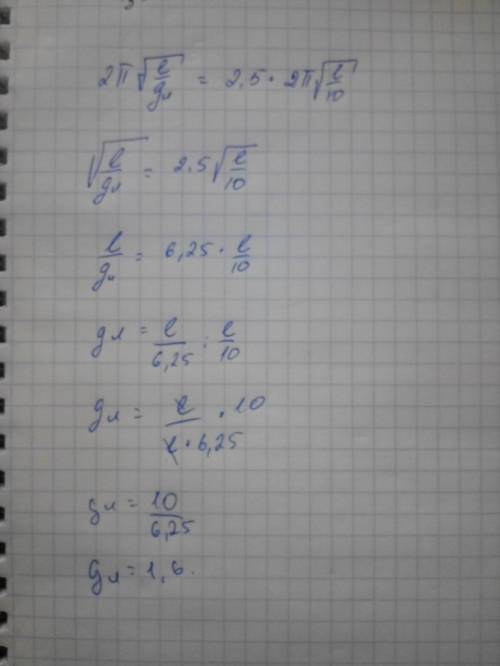 2π√(l/gл) = 2,5 · 2π√(l/10)
√(l/gл) = 2.5√(l/10)
l/gл = 6,25 · l/10
gл = l/6,25 : l/10
gл = l/(l · 6,25) · 10
gл = 10/6,25
gл = 1,6.